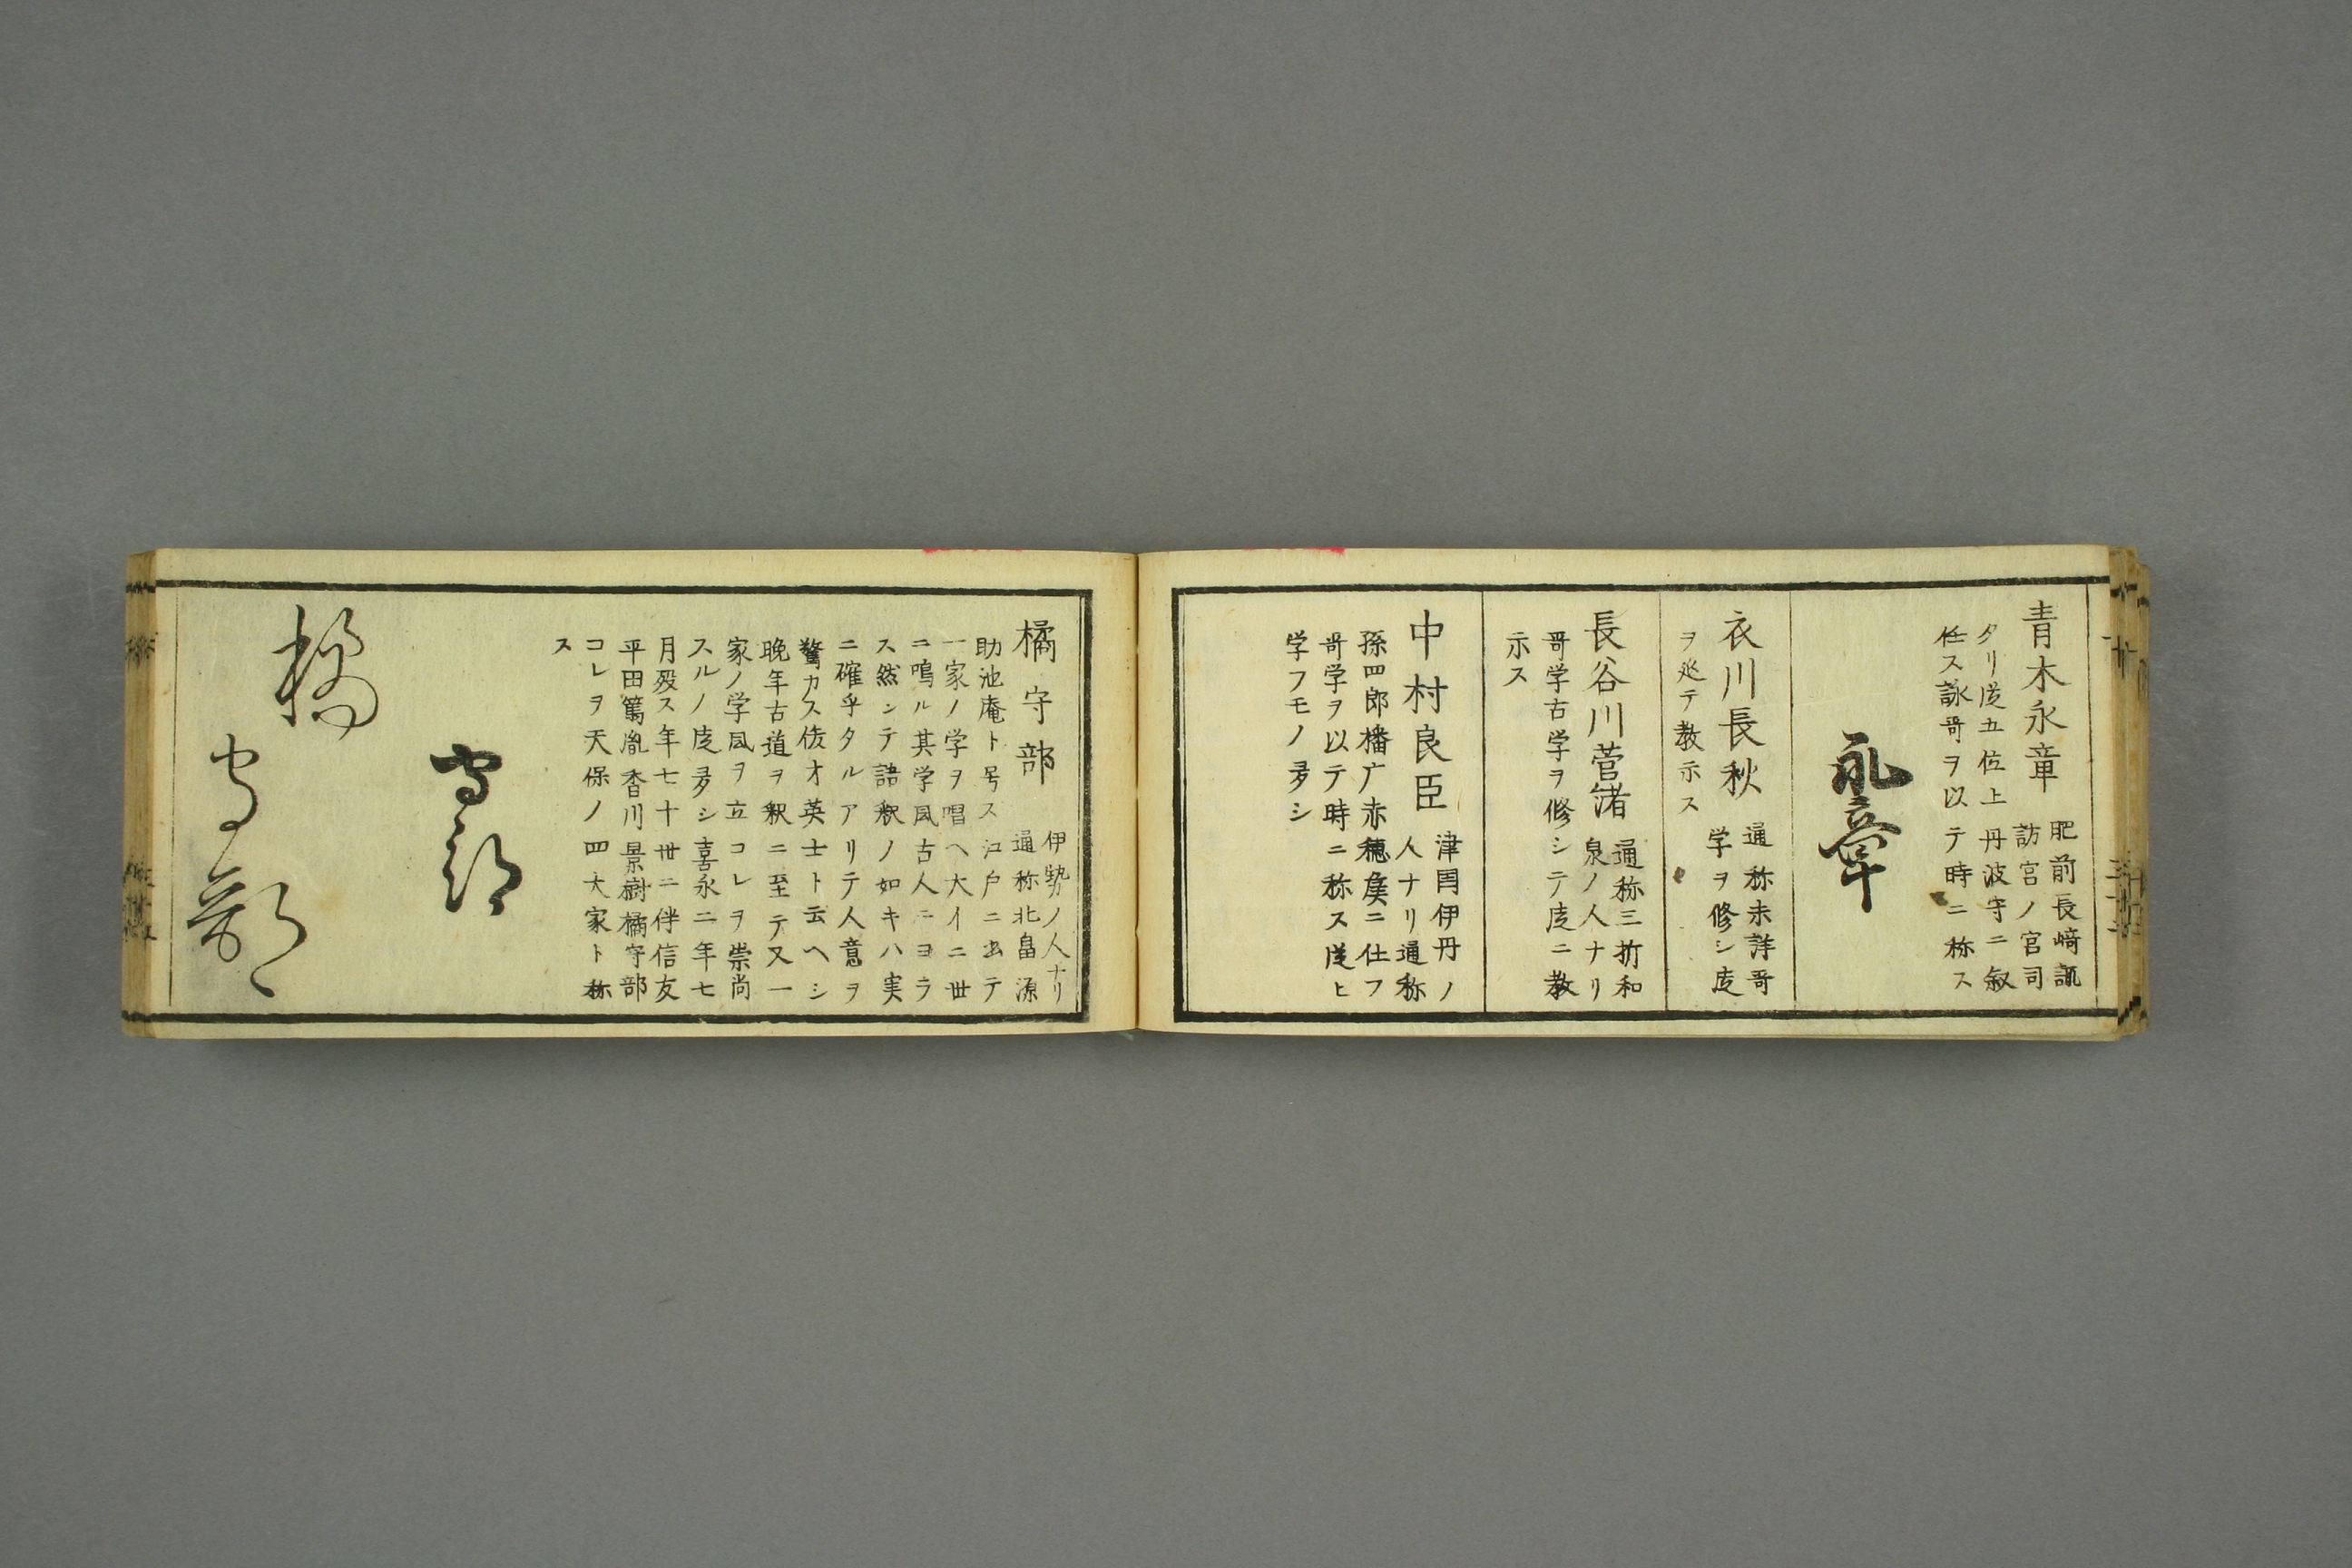 青木永章
肥前長﨑諏
訪宮ノ宮司
タリ従五位上丹波守ニ叙
任ス詠哥ヲ以テ時ニ称ス
永章
衣川長秋
通称未詳哥
学ヲ修シ度
ヲ巡テ教示ス
長谷川菅渚
通称三折和
泉ノ人ナリ
哥学古学ヲ修シテ度ニ教
示ス
中村良臣
津国伊丹ノ
人ナリ通称
孫四郎播广赤穂矦ニ仕フ
哥学ヲ以テ時ニ称ス従ヒ
学フモノ多シ
橘守部
伊勢ノ人ナリ
通称北畠源
助池庵ト号ス江户ニ出テ
一家ノ学ヲ唱ヘ大イニ世
ニ鳴ル其学風古人ニヨラ
ス然シテ語釈ノ如キハ実
ニ確乎タルアリテ人意ヲ
驚カス俊才英士ト云ヘシ
晩年古道ヲ釈ニ至テ又一
家ノ学風ヲ立コレヲ崇尚
スルノ度多シ喜永二年七
月殁ス年七十世ニ伴信友
平田篤胤香川景樹橘守部
コレヲ天保ノ四大家ト称
ス
守部
橘
守
部